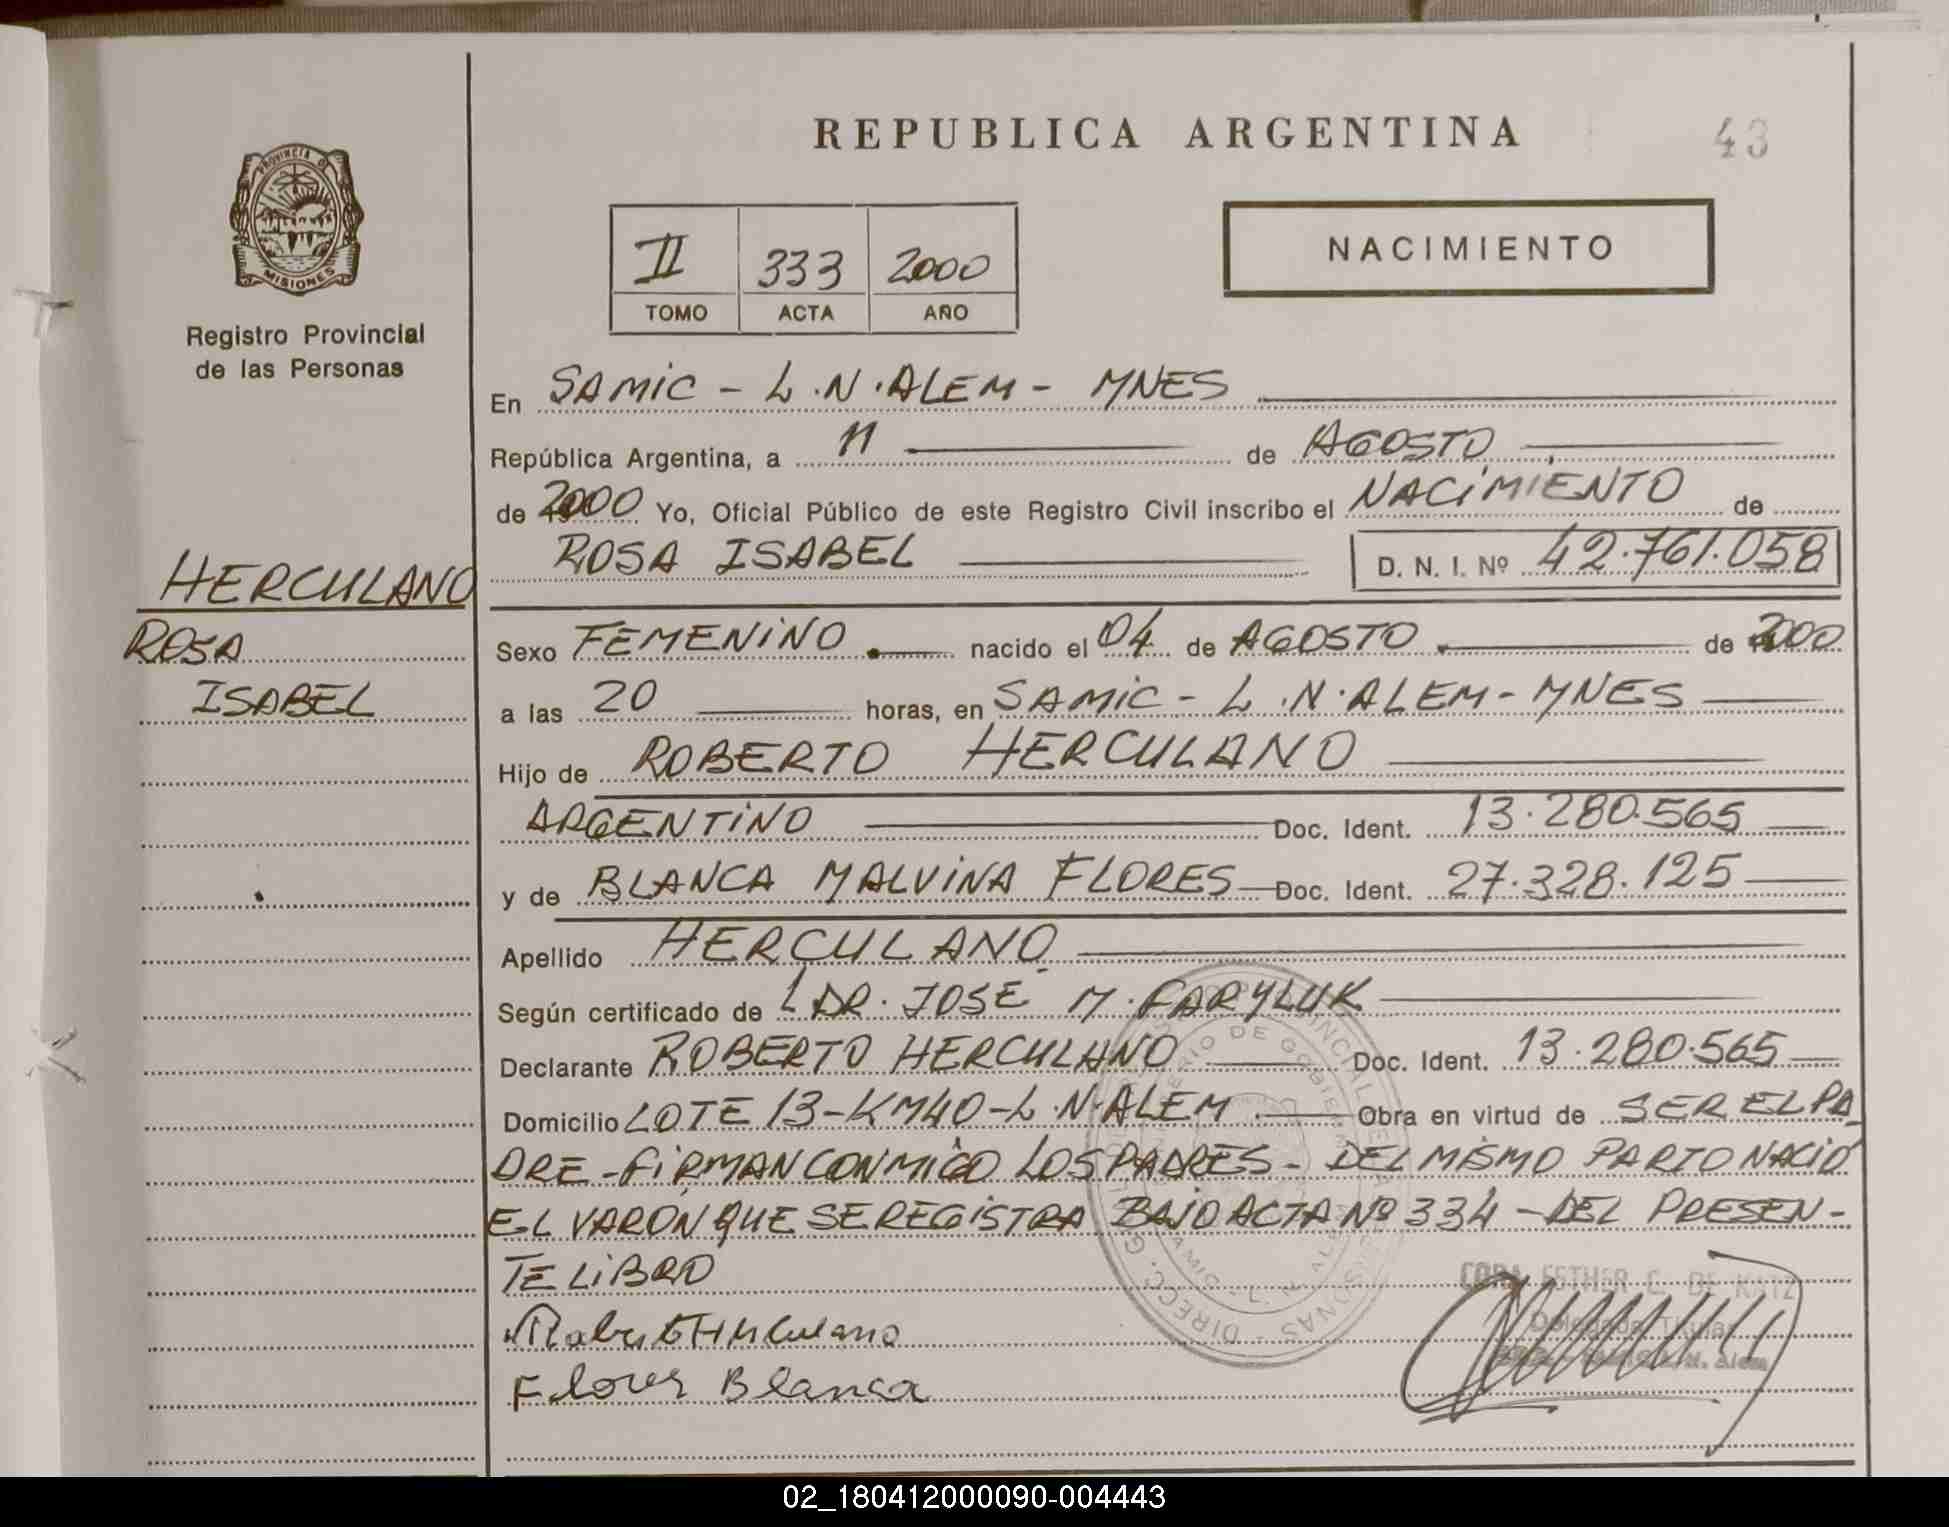 REPUBLICA ARGENTINA
43
PROVINCIA DE
MISIONES
Registro Provincial
de las Personas
II 333 2000
TOMO ACTA AÑO
NACIMIENTO
En SAMIC - L.N.ALEM - MNES
República Argentina, a 11 de AGOSTO
de 2000 Yo, Oficial Público de este Registro Civil inscribo el NACIMIENTO de
ROSA ISABEL D. N. I. Nº 42.761.058
HERCULANO
ROSA
ISABEL
Sexo FEMENINO. nacido el 04 de AGOSTO de 2000
a las 20 horas, en SAMIC - L.N.ALEM - MNES
Hijo de ROBERTO HERCULANO
ARGENTINO Doc. Ident. 13.280.565
y de BLANCA MALVINA FLORES Doc. Ident. 27.328.125
Apellido HERCULANO
Según certificado de DR. JOSE M. FARYLUK
Declarante ROBERTO HERCULANO Doc. Ident. 13.280.565
Domicilio LOTE 13-KM40-L.N.ALEM Obra en virtud de SER EL PA
DRE - FIRMAN CONMIGO LOS PADRES - DEL MISMO PARTO NACIO
EL VARON QUE SE REGISTRA BAJO ACTA Nº 334 - DEL PRESEN-
TE LIBRO
Roberto Herculano
Flores Blanca
CORA ESTHER C. DE KATZ
Delegada Titular
02_180412000090-004443